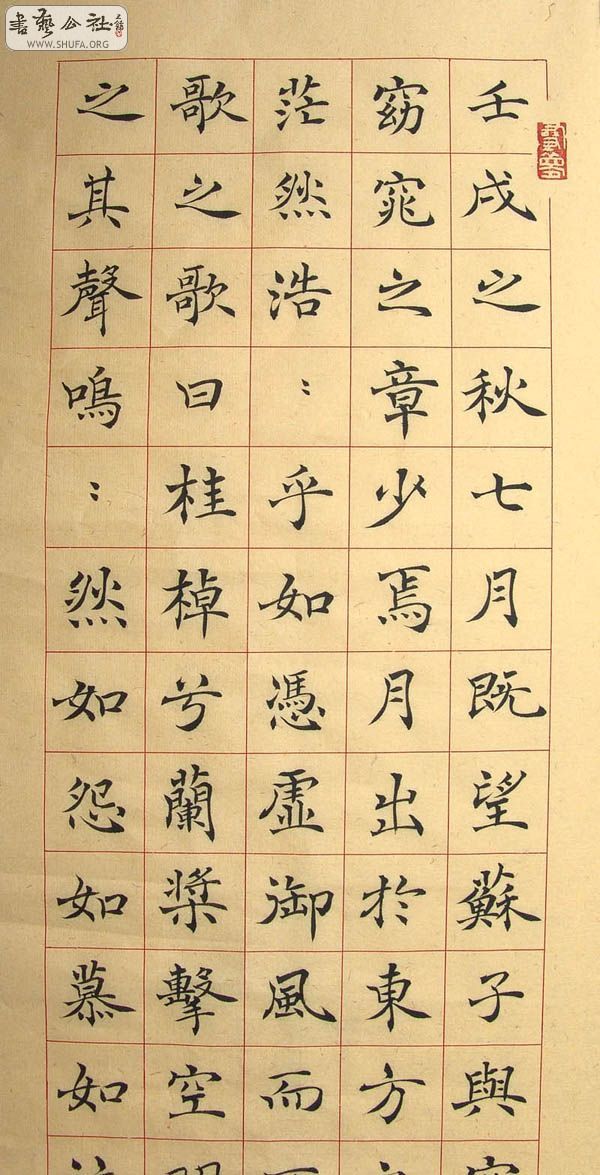 書藝公社
WWW.SHUFA.ORG
壬戌之秋七月既望蘇子與
窈窕之章少焉月出於東方
茫然浩：乎如憑虛御風而
歌之歌曰桂棹兮蘭槳擊空
之其聲鳴：然如怨如慕如